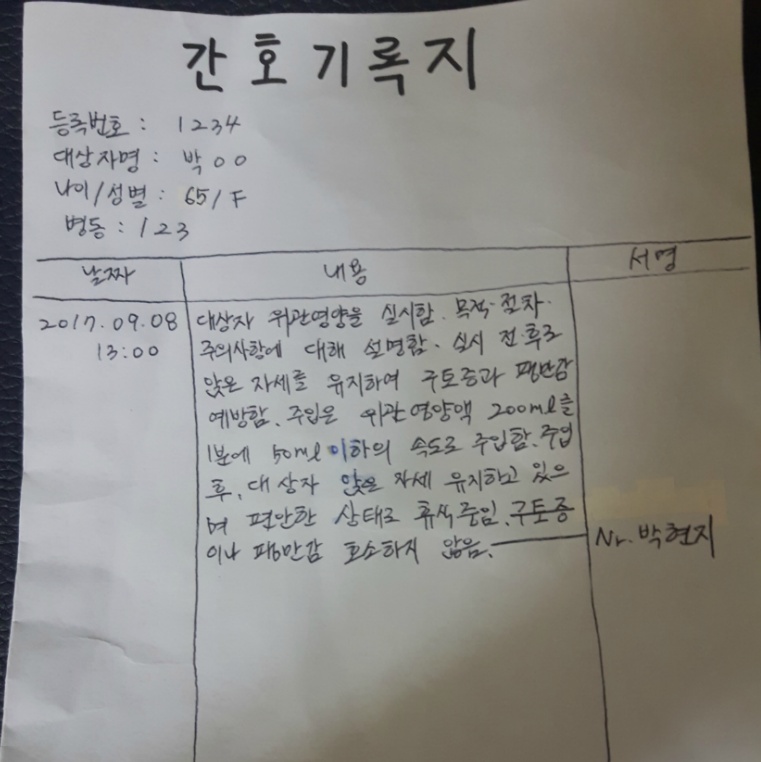 간호기록지
등록번호 : 1234
대상자명 : 박○○
나이/성별 : 65/F
병동 : 123
날짜 내용 서명
2017.09.08 대상자 위관영양을 실시함. 목적·절차·
13:00 주의사항에 대해 설명함. 실시 전·후로
앉은 자세를 유지하여 구토증과 팽만감
예방함. 주입은 위관영양액 200ml를
1분에 50ml 이하의 속도로 주입함. 주입
후, 대상자 앉은 자세 유지하고 있으
며 편안한 상태로 휴식중임. 구토증
이나 팽만감 호소하지 않음. Nr. 박현지